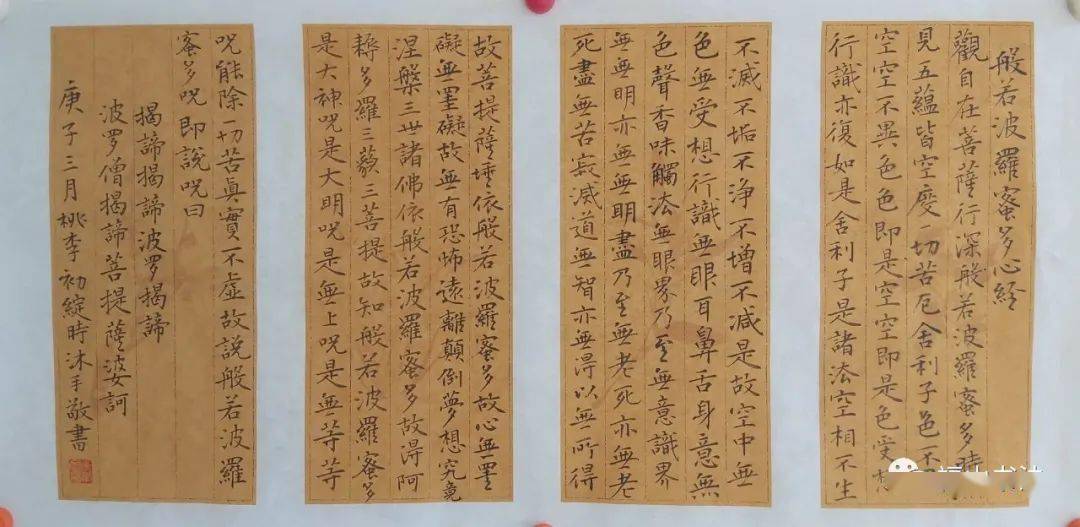 般若波羅蜜多心経
觀自在菩薩行深般若波羅蜜多時
見五蘊皆空度一切苦厄舍利子色不
空空不異色色即是空空即是色受想
行識亦復如是舍利子是諸法空相不生
不滅不垢不淨不增不減是故空中無
色無受想行識無眼耳鼻舌身意無
色聲香味觸法無眼界乃至無意識界
無無明亦無無明盡乃至無老死亦無老
死盡無苦寂滅道無智亦無得以無所得
故菩提薩埵依般若波羅蜜多故心無罣
礙無罣礙故無有恐怖遠離顛倒夢想究竟
涅槃三世諸佛依般若波羅蜜多故得阿
耨多羅三藐三菩提故知般若波羅蜜多
是大神咒是大明咒是無上咒是無等等
咒能除一切苦真實不虛故說般若波羅
蜜多咒即說咒曰
揭諦揭諦波罗揭諦
波罗僧揭諦菩提薩婆訶
庚子三月桃李初綻時沐手敬書